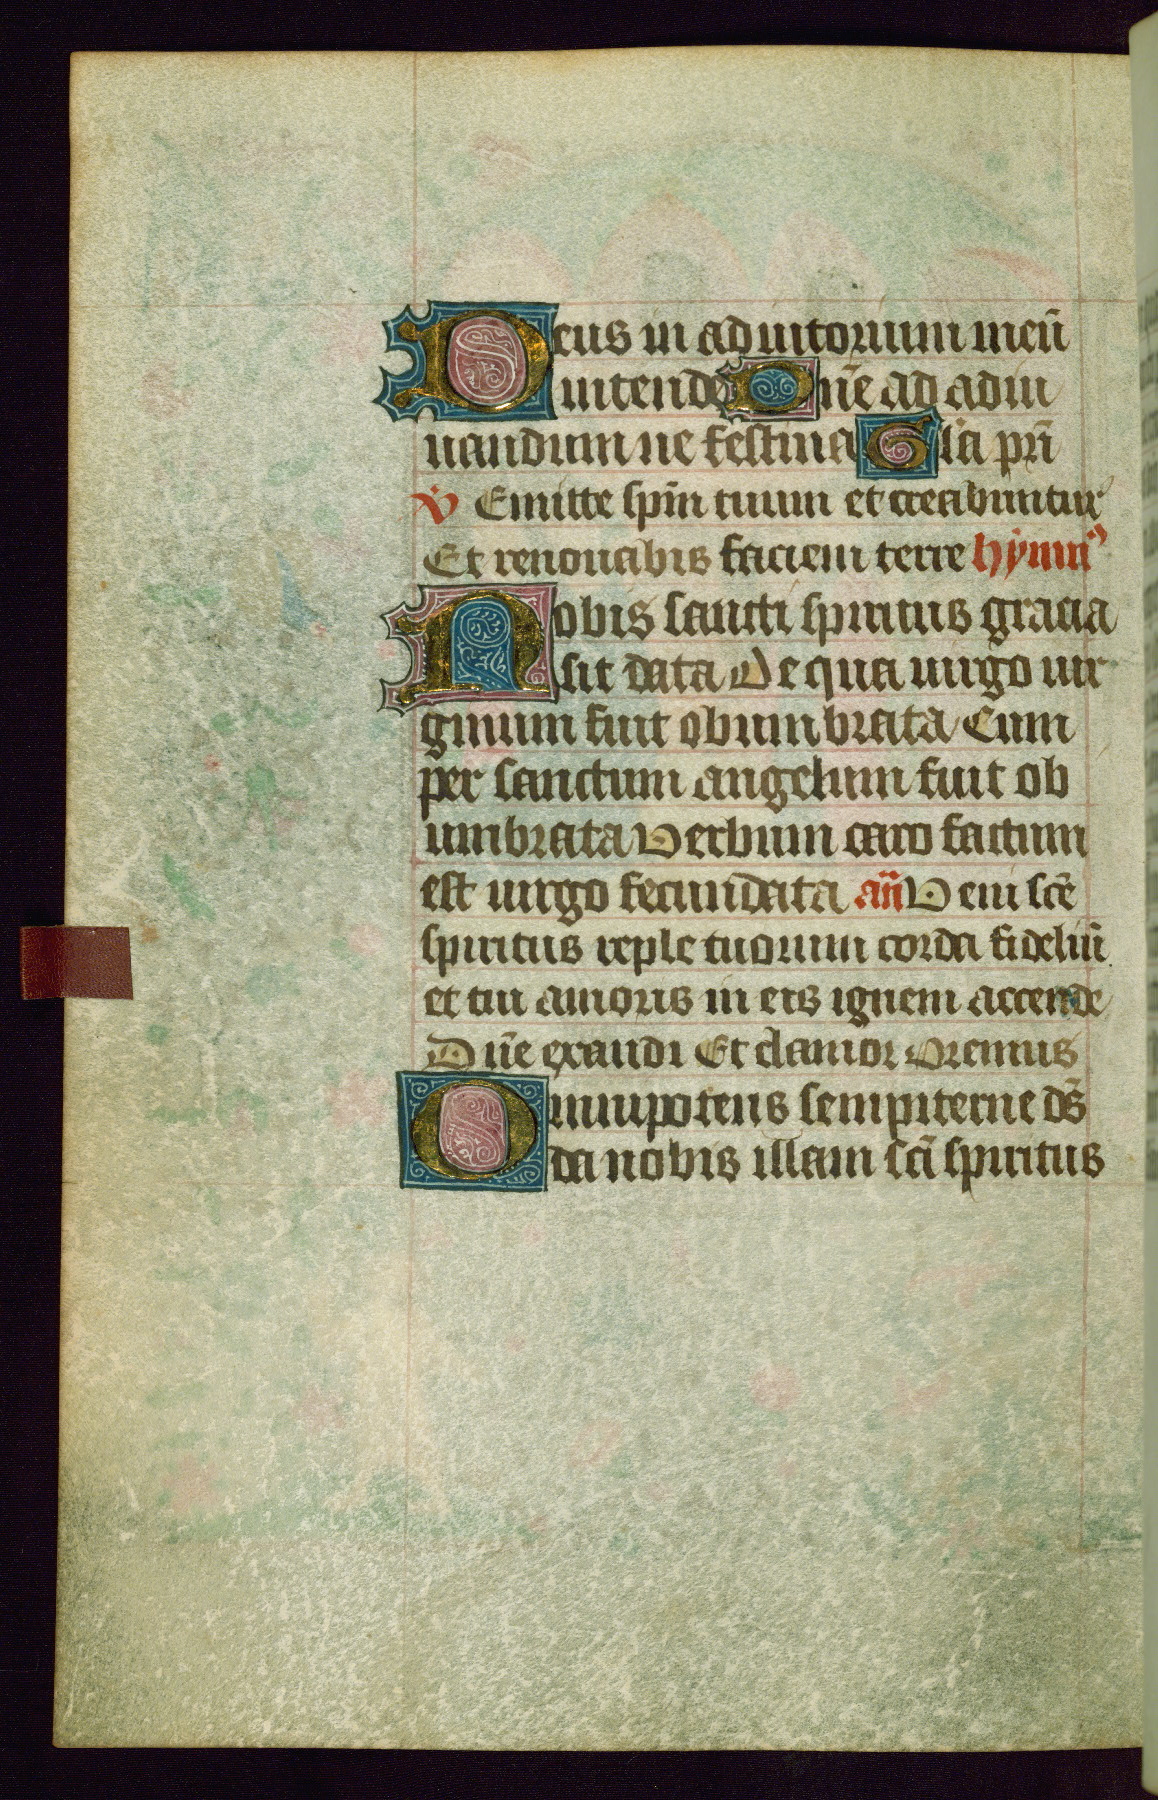 Deus in adiutorium meū
intende Dn̄e ad adiu
uandum me festina Gl'a pr̄i
v̇ Emitte sp̄m tuum et creabuntur
Et renouabis faciem terre hymn⁹
Nobis sancti spiritus gracia
sit data De qua uirgo uir
ginum fuit obumbrata Cum
per sanctum angelum fuit ob
umbrata Verbum caro factum
est uirgo fecundata an̄ Veni sc̄e
spiritus reple tuorum corda fideliū
et tui amoris in eis ignem accende
Dn̄e exaudi Et clamor Oremus
Omnipotens sempiterne ds̄
da nobis illam sc̄i spiritus